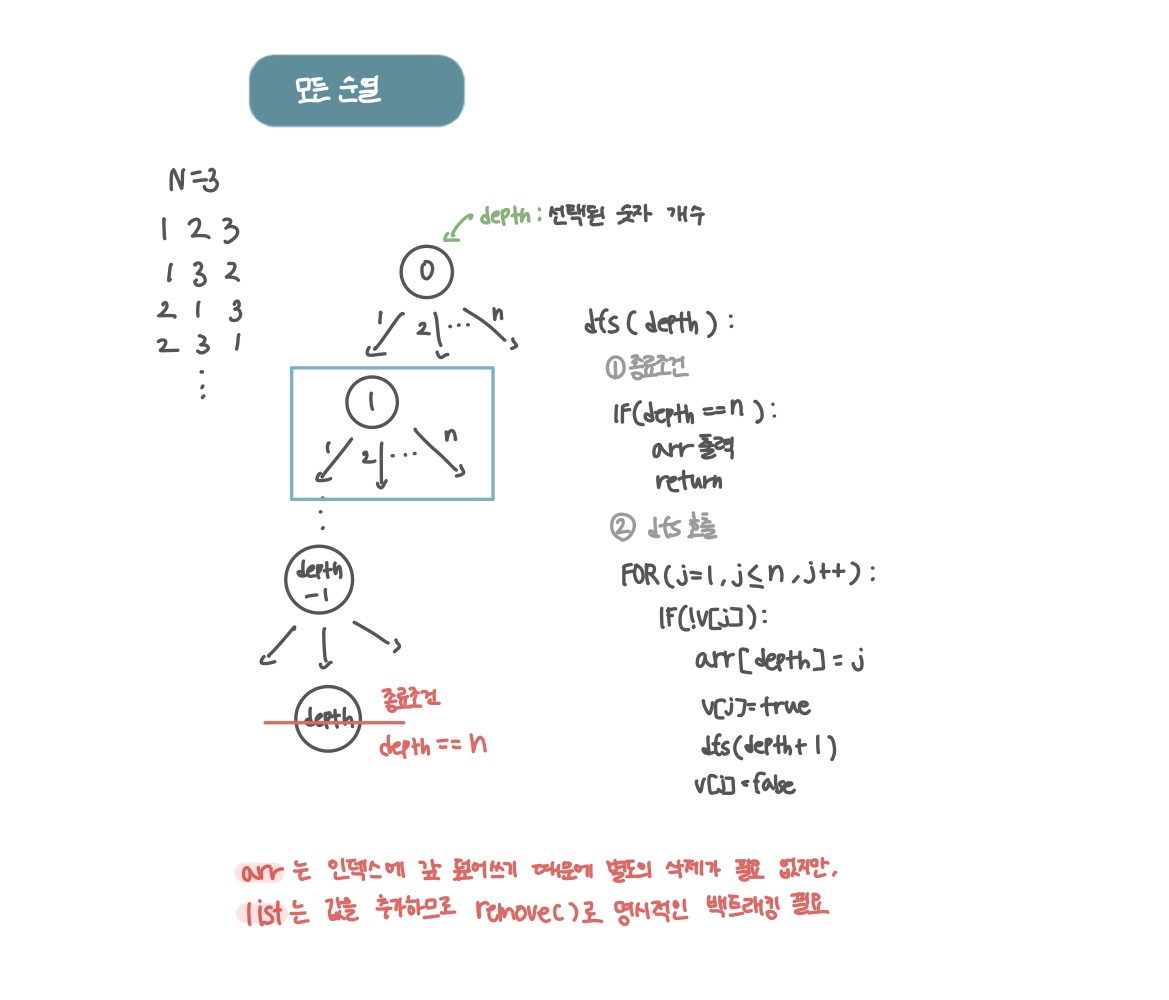 모든 순열
N=3
1 2 3
1 3 2
2 1 3
2 3 1
⋮
depth : 선택된 숫자 개수
0
1 2 ... n
1
1 2 ... n
⋮
depth
-1
depth
종료조건
depth == n
dfs(depth):
① 종료조건
IF(depth == n):
arr 출력
return
② dfs 호출
FOR(j=1, j≤n, j++):
IF(!v[j]):
arr[depth] = j
v[j]=true
dfs(depth+1)
v[j]=false
arr 는 인덱스에 값 덮어쓰기 때문에 별도의 삭제가 필요 없지만,
list는 값을 추가하므로 remove()로 명시적인 백트래킹 필요